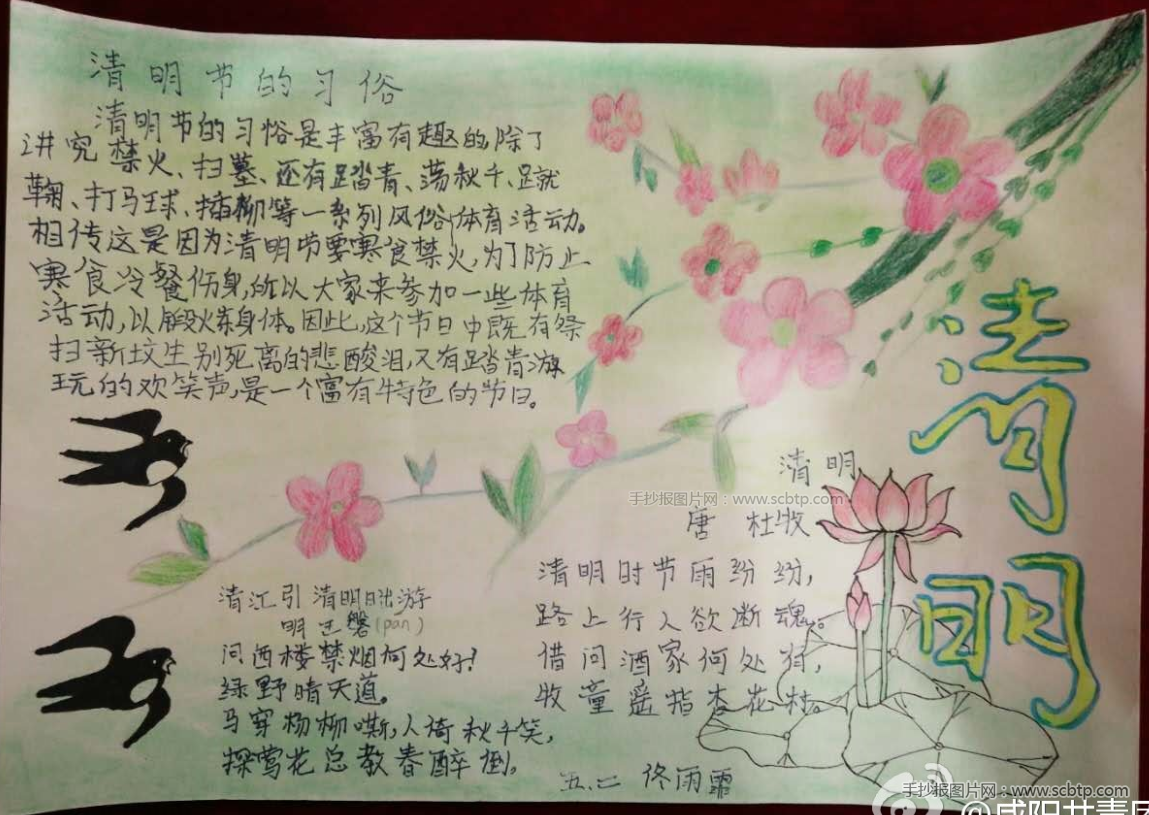 清明节的习俗
清明节的习俗是丰富有趣的,除了
讲究禁火、扫墓、还有踏青、荡秋千、蹴
鞠、打马球、插柳等一系列风俗体育活动。
相传这是因为清明节要寒食禁火,为了防止
寒食冷餐伤身,所以大家来参加一些体育
活动,以锻炼身体。因此,这个节日中既有祭
扫新坟生别死离的悲酸泪,又有踏青游
玩的欢笑声,是一个富有特色的节日。
清明
清明
手抄报图片网:www.scbtp.com
唐 杜牧
清明时节雨纷纷,
路上行人欲断魂。
借问酒家何处有,
牧童遥指杏花村。
清江引 清明日出游
明 王磐(pán)
问西楼禁烟何处好?
绿野晴天道。
马穿杨柳嘶,人倚秋千笑,
探莺花总教春醉倒。
五.二 佟雨霏
手抄报图片网:www.scbtp.com
@咸阳共青团